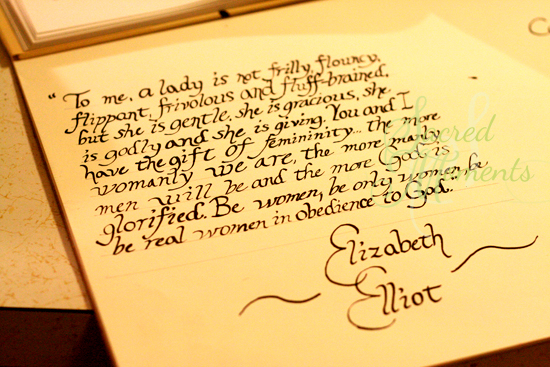 "To me, a lady is not frilly, flouncy,
flippant, frivolous and fluff-brained,
but she is gentle, she is gracious, she
is godly and she is giving. You and I
have the gift of femininity... the more
womanly we are, the more manly
men will be and the more God is
glorified. Be women, be only women, be
be real women in obedience to God."
Elizabeth
Elliot
Sacred
Moments